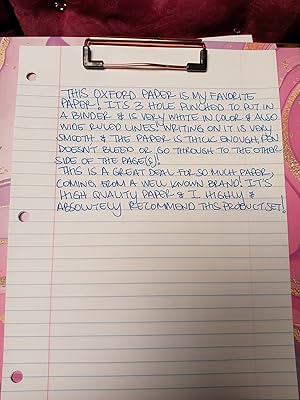 THIS OXFORD PAPER IS MY FAVORITE
PAPER! ITS 3 HOLE PUNCHED TO PUT IN
A BINDER & IS VERY WHITE IN COLOR & ALSO
WIDE RULED LINES! WRITING ON IT IS VERY
SMOOTH & THE PAPER IS THICK ENOUGH, PEN
DOESN'T BLEED OR GO THROUGH TO THE OTHER
SIDE OF THE PAGE(S)!
THIS IS A GREAT DEAL FOR SO MUCH PAPER,
COMING FROM A WELL KNOWN BRAND! IT'S
HIGH QUALITY PAPER & I HIGHLY &
ABSOLUTELY RECOMMEND THIS PRODUCT SET!